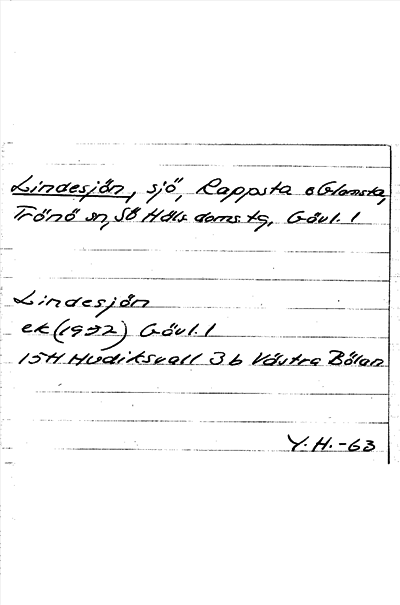 Lindesjön, sjö, Rappsta o Glamsta,
Trönö sn, SÖ Häls doms tg, Gävl. l
Lindesjön
ek (1972) Gävl. l
15H Hudiksvall 3b Västra Bölan
Y. H. -63